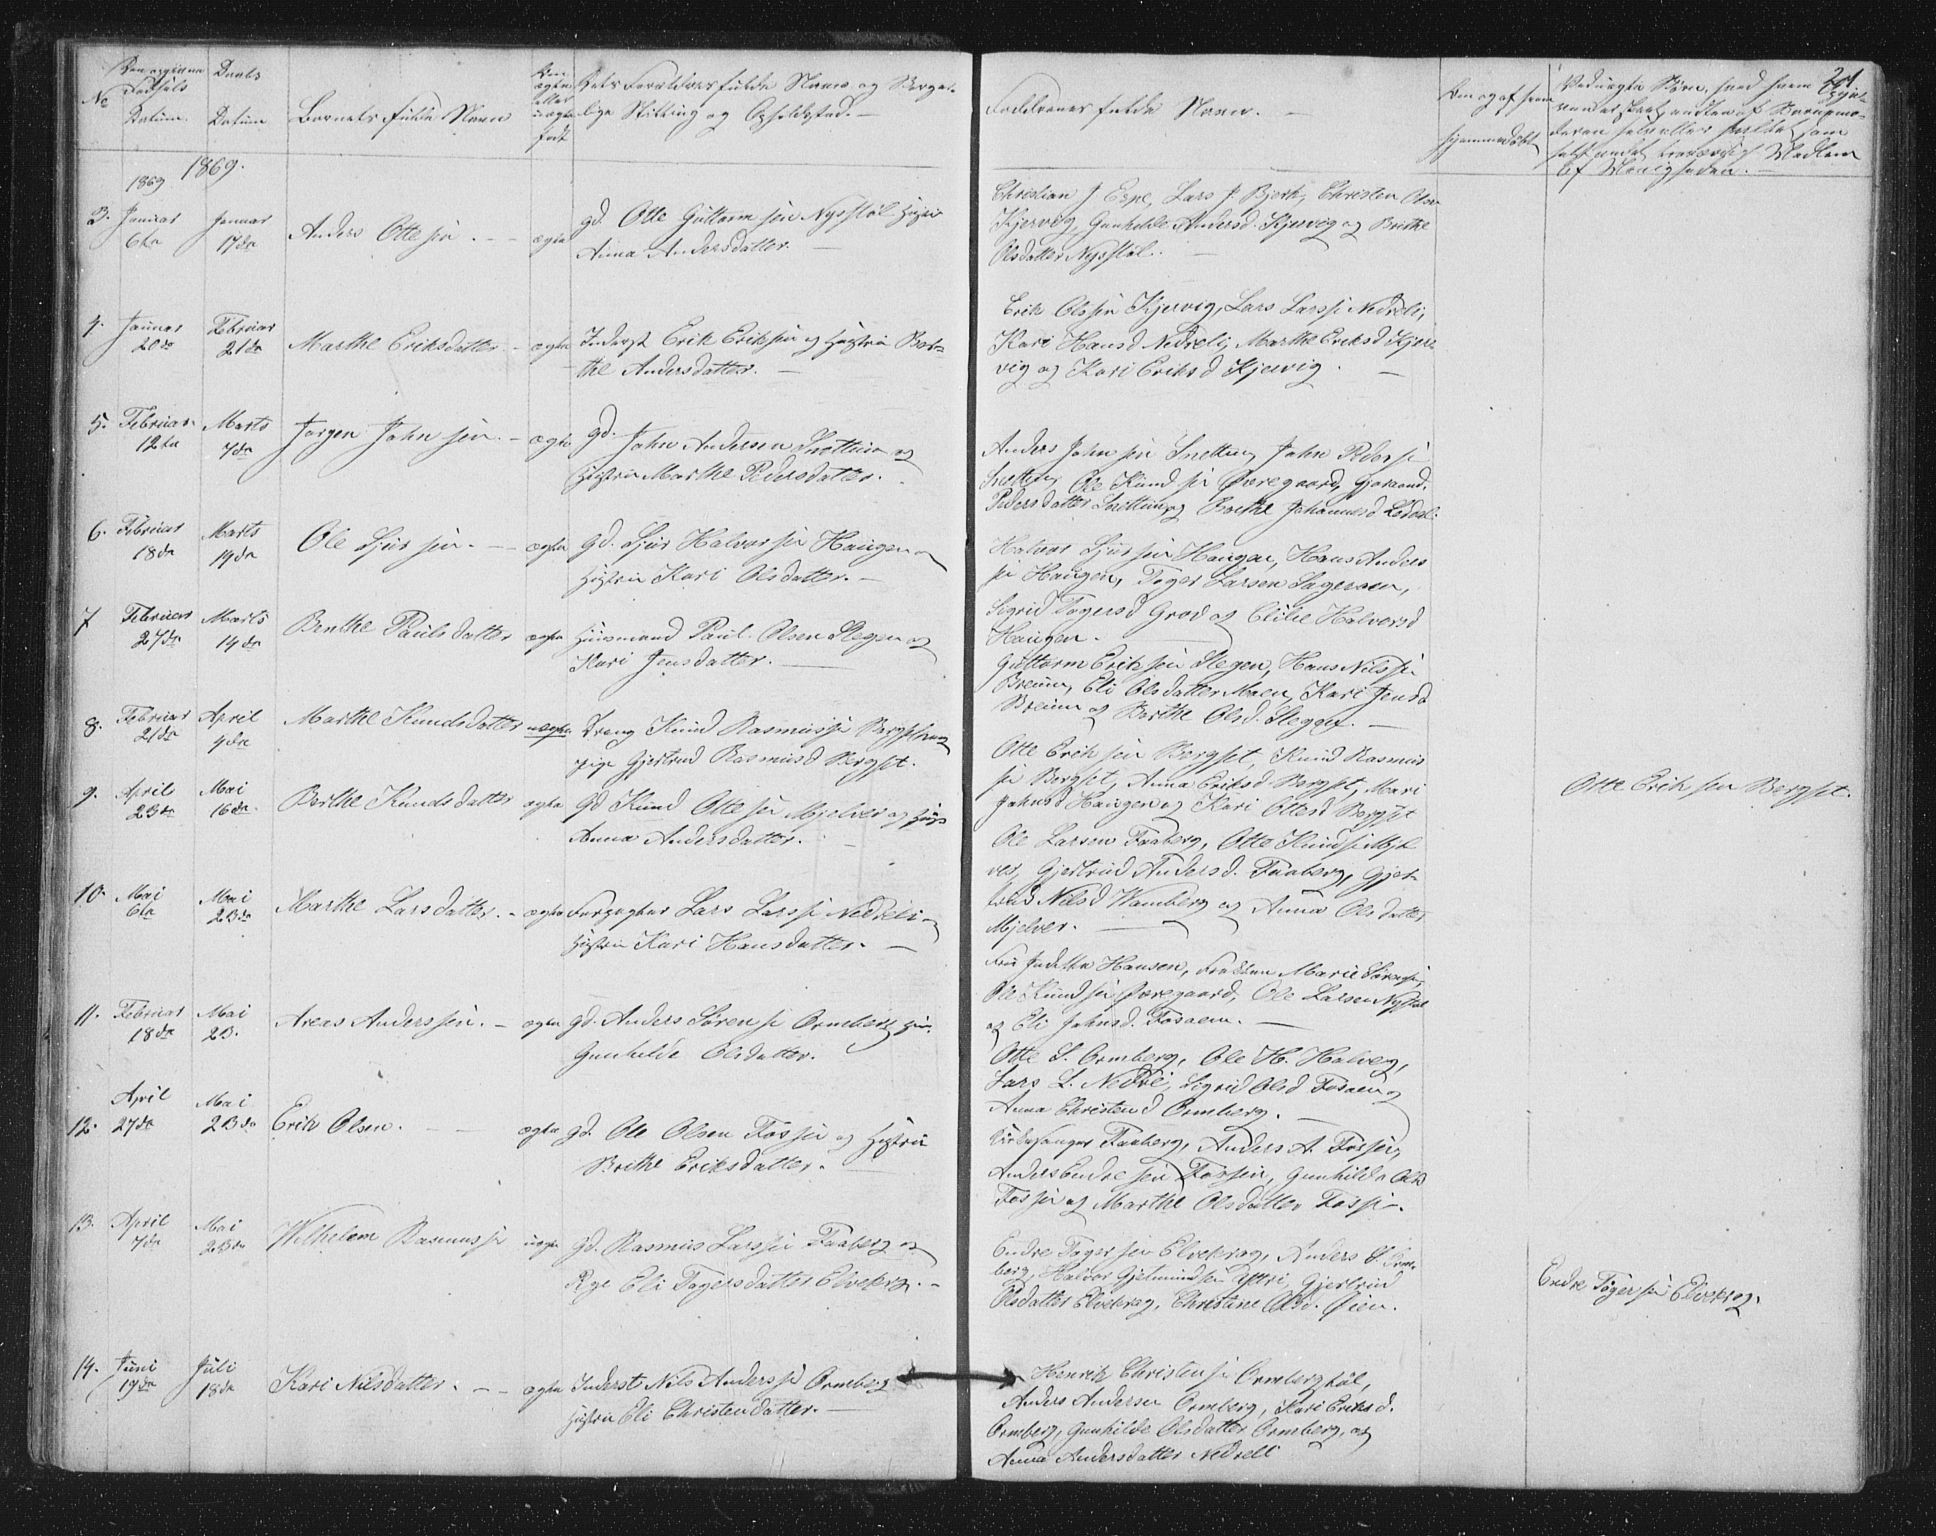 24
No
Fødsels
Datum.
Daabs
Datum
Barnets fulde Navn
ægte
eller
uægte
født
Forældres fulde Navn og Borger-
lige Stilling og Opholdssted. —
Faddernes fulde Navn. —
hjemmedøbt
1869
1869.
3. Januar 6te
Januar 17de
Anders Ottesen. — —
ægte
gd. Otte Guttormsen Nysstøl Hustru
Anna Andersdatter. —
Christian J Espe, Lars J. Bjerk, Christen Olsen
Kjervig, Gunhilde Andersd. Kjervig og Brithe
Olsdatter Nysstøl. —
4. Januar 20de
Februar 21de
Marthe Eriksdatter —
ægte
Inderst Erik Eriksen og Hustru Ber-
the Andersdatter. —
Erik Olssen Kjervig, Lars Larss. Nedreli,
Kari Hansd Nedreli, Marthe Eriksd Kjer-
vig og Kari Eriksd Kjervig. —
5. Februar 12te
Marts 7de
Jørgen Johnsen. —
ægte
gd. John Andersen Snetting og
Hustru Marthe Pedersdatter.
Anders Johnsen Snetting John Peders.
Snetting Ole Knudsen Øvregaard,
Pedersdatter Snetting og Berthe Johannesd
6. Februar 18de
Marts 19de
Ole Sjursen. — —
ægte
gd. Sjur Halvorsen Haugen og
Hustru Kari Olsdatter. —
Halvor Sjursen Haugen, Hans Anders
sen Haugen, Tøger Larsen
Sigrid Tøgersd Grov og Cicilie Halvorsd
Haugen. —
7 Februar 27de
Marts 14de
Brithe Paulsdatter
ægte
Huusmand Paul Olsen Stegen og
Kari Jensdatter. —
Guttorm Eriksen Stegen, Hans Nilsse
Breum, Eli Olsdatter Moen, Kari Jensd
Breum og Berthe Olsd. Stegen. —
8. Februar 21de
April 4de
Marthe Knudsdatter
uægte
Dreng Knud Rasmussen Bergset og
Pige Gjertrud Rasmusd Bergset.
Otte Eriksen Bergset, Knud Rasmus
sen Bergset, Anna Eriksd Bergset, Mari
Johnsd Haugen og Kari Ottesd Bergset
Otte Eriksen Bergset.
9. April 23de
Mai 16de.
Berthe Knudsdatter
ægte
Gd Knud Ottesen Mjelver og Hus
Anna Andersdatter. —
Ole Larsen Faaberg, Otte Knuds. Mjel
ver, Gjertrud Andersd. Faaberg, Gjer-
trud Nilsd Wamberg og Anna Olsdatter
Mjelver. —
10. Mai 6te
Mai 23de
Marthe Larsdatter. —
ægte
Forpagter Lars Larss. Nedreli og
Hustru Kari Hansdatter. —
Fru Hansen, Frøken Marie Sørens.,
Ole Knudsen Øvregaard, Ole Larsen Nysstøl
og Eli Johnsd. Fosaaen. —
11. Februar 18de
Mai 23.
Anders Anderssen. —
ægte
gd. Anders Sørens. Ormberg Hu.
Gunhilde Olsdatter.
Otte S. Ormberg, Ole H. Halveg,
Lars L. Nedre, Sigrid Olsd Fosaaen og
Anna Christensd Ormberg. —
12. April 27de
Mai 23de
Erik Olsen. — —
ægte
gd. Ole Olsen Fosse og Hustru
Brithe Eriksdatter. —
Kirkesanger Faaberg, Anders A. Fosse,
Anders Endresen Fosse, Gunhilde Olsd
Fosse og Marthe Olsdatter Fosse. —
13. April 7de
Mai 23de
Wilhelm Rasmuss.
uægte
gd. Rasmus Larssen Faaberg og
Pige Eli Tøgersdatter Elvekrog. —
Endre Tøgersen Elvekrog, Anders S. Orm-
berg, Halvor Gjelmundsen Yttri, Gjertrud
Olsdatter Elvekrog, Christine Olsd. Øien.
Endre Tøgersen Elvekrog.
14. Juni 19de
Juli 18de
Kari Nilsdatter. — —
ægte
Inderst Nils Anderss. Ormberg
Hustru Eli Christensdatter. —
Henrik Christens. Ormbergstøl,
Anders Andersen Ormberg, Kari Eriksd.
Ormberg, Gunhilde Olsdatter Ormberg, og
Anna Andersdatter Nedreli